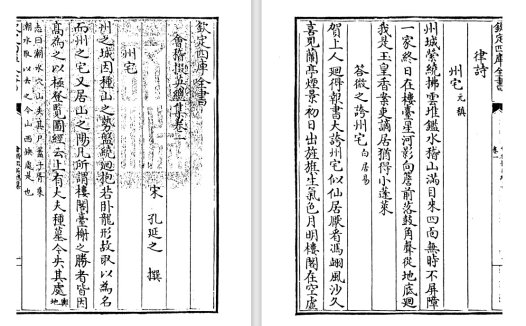 欽定四庫全書
會稽掇英總集卷一
宋 孔延之 撰
州宅
州之城因種山之勢盤繞廻抱若卧龍形故取以為名
而州之宅又居山之陽凡所謂樓閣臺榭之勝者皆因
髙為之以極登覽圖經云上有大夫種墓今失其處輿地
志曰潮水穴山失其尸舊
潮水取以去之今山西缺處是也
欽定四庫全書
律詩
州宅 元稹
州城縈繞拂雲堆鑑水稽山滿目来四面無時不屏障
一家終日在樓臺星河影向簷前落鼓角聲從地底廻
我是玉皇香案吏謫居猶得小蓬萊
答微之誇州宅 白居易
賀上人廻得報書大誇州宅似仙居厭看馮翊風沙久
喜見蘭亭煙景初日出旌旗生氣色月明樓閣在空虛